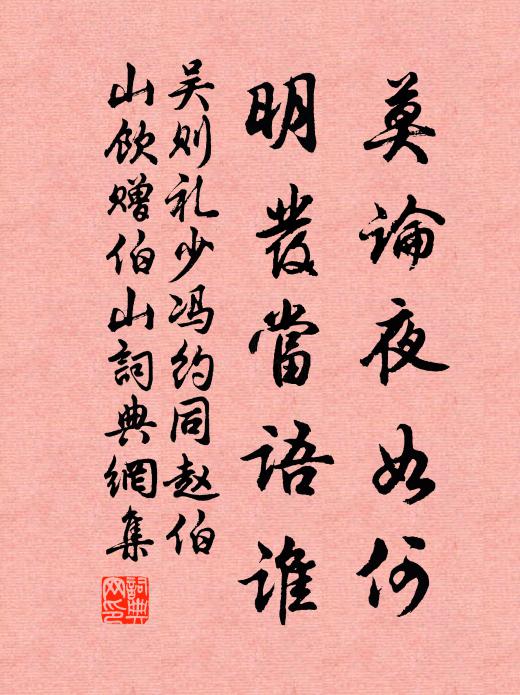 莫論夜如何
明發當語誰
吴则礼少冯约同赵伯
山饮赠伯山詞典網集
詞典网印